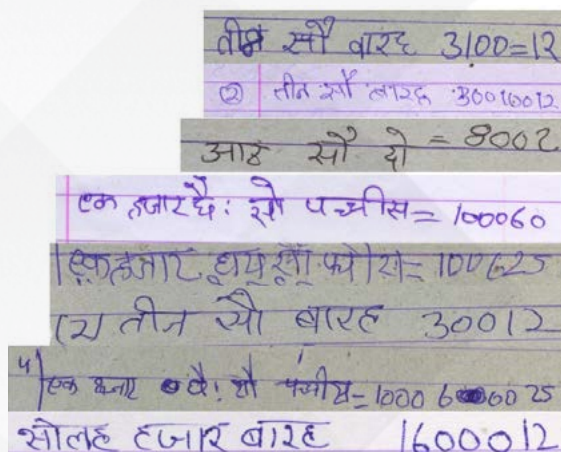 तीन सौ बारह 3100=12
② तीन सौ बारह 30010012
आठ सौ दो = 8002
एक हजार छै: सो पच्चीस = 100060
एक हजार = 100625
(2) तीन सौ बारह 30012
4) एक हजार छै: सौ पच्चीस = 1000 6 60 25
सोलह हजार बारह 1600012